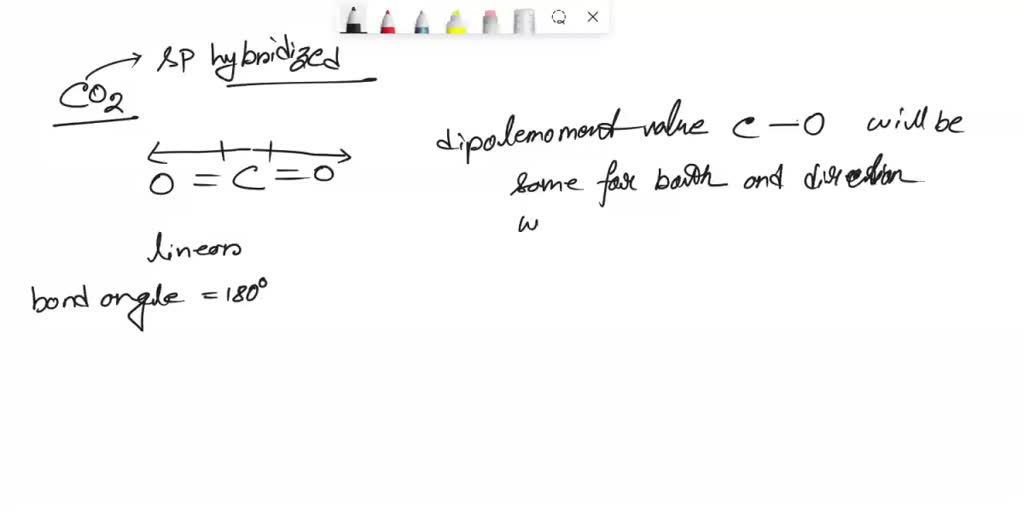 CO2 → SP hybridized
O = C = O
linear
bond angle = 180°
dipolemoment value C — O will be
same for both and direction
w